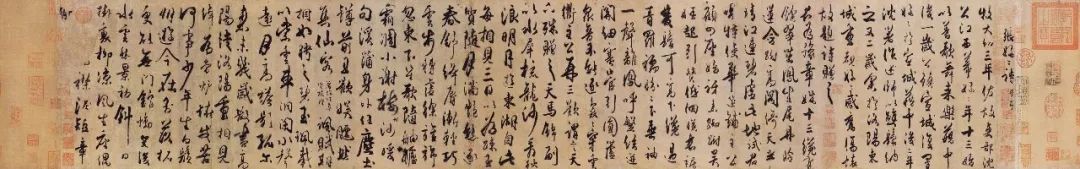 張好好詩
牧大和三年佐故吏部沈
公江西幕好好年十三始
以善歌舞來樂籍中
後一歲公鎮宣城復置
好好於宣城籍中後二年
沈著作以雙鬟納
之又二歲余於洛陽東
城重覩好好感舊傷懷
故題詩贈之
君為豫章姝十三纔有
餘翠茁鳳生尾丹臉
蓮含跗高閣倚天半
晴江聯碧虛此地試君
唱特使華筵鋪主公
顧四座始訝來踟躕吳
娃起引贊低佪映長裾
雙鬟可高下纔過
青羅襦盼盼下垂袖
一聲離鳳呼繁絃迸
關紐塞管引圓蘆
衆音不能逐裊裊穿雲
衢主公再三歎謂言天
下殊贈之天馬錦副
以水犀梳龍沙看秋
浪明月遊東湖自此
每相見三日以為疎玉
質隨月滿豔態逐
春舒絳脣漸輕巧
雲步轉虛徐旌旆
忽東下笙歌隨舳艫
霜凋小謝樹沙暖
句溪蒲身外任塵土
罇前極歡娛飄然
集仙客諷賦期
相如聘之碧玉珮載
以紫雲車洞閉水聲
遠月高蟾影孤尔
來未幾歲散盡高
陽徒洛陽重相見
婥婥為當壚怪我苦
何事少年生白鬚
朋遊今在否落拓
更能無門館慟哭後
水雲秋景初斜日
掛衰柳涼風生座隅
襟淚短章